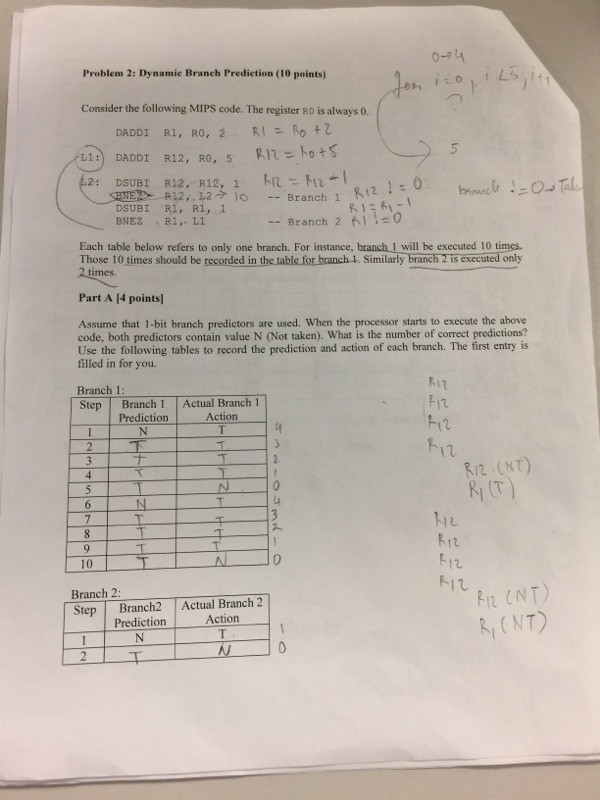 0→4
for i=0, i<5, i++
Problem 2: Dynamic Branch Prediction (10 points)
Consider the following MIPS code. The register R0 is always 0.
DADDI R1, R0, 2 R1 = R0 + 2
L1: DADDI R12, R0, 5 R12 = R0 + 5 5
L2: DSUBI R12, R12, 1 R12 = R12 - 1
BNEZ R12, L2 → 10 -- Branch 1 R12 != 0 branch != 0 → Taken
DSUBI R1, R1, 1 R1 = R1 - 1
BNEZ R1, L1 -- Branch 2 R1 != 0
Each table below refers to only one branch. For instance, branch 1 will be executed 10 times.
Those 10 times should be recorded in the table for branch 1. Similarly branch 2 is executed only
2 times.
Part A [4 points]
Assume that 1-bit branch predictors are used. When the processor starts to execute the above
code, both predictors contain value N (Not taken). What is the number of correct predictions?
Use the following tables to record the prediction and action of each branch. The first entry is
filled in for you.
Branch 1:
Step Branch 1 Prediction Actual Branch 1 Action
1 N T 4
2 T T 3
3 T T 2
4 T T 1
5 T N 0
6 N T 4
7 T T 3
8 T T 2
9 T T 1
10 T N 0
R12
R12
R12
R12
R12 (NT)
R1 (T)
R12
R12
R12
R12
R12 (NT)
R1 (NT)
Branch 2:
Step Branch2 Prediction Actual Branch 2 Action
1 N T 1
2 T N 0